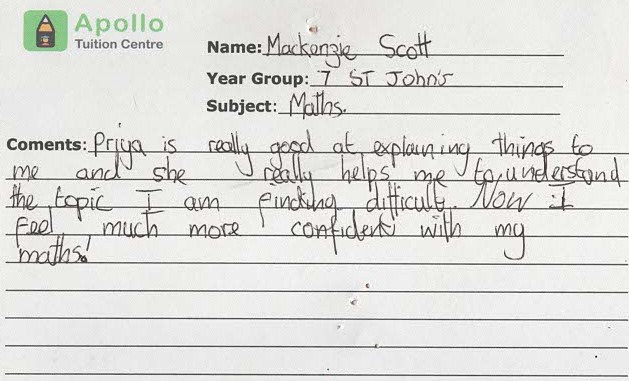 Apollo
Tuition Centre
Name: Mackenzie Scott
Year Group: 7 ST John's
Subject: Maths.
Coments: Priya is really good at explaining things to
me and she really helps me to understand
the topic I am finding difficult. Now I
Feel much more confident with my
maths!